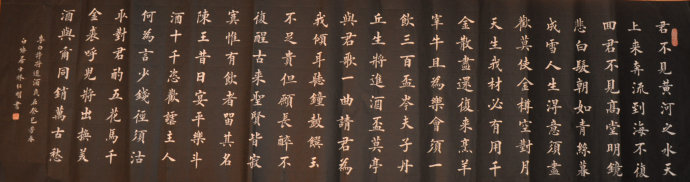 君不見黃河之水天
上來奔流到海不復
回君不見高堂明鏡
悲白髮朝如青絲暮
成雪人生得意須盡
歡莫使金樽空對月
天生我材必有用千
金散盡還復來烹羊
宰牛且為樂會須一
飲三百盃岑夫子丹
丘生將進酒盃莫停
與君歌一曲請君為
我傾耳聽鐘鼓饌玉
不足貴但願長醉不
復醒古來聖賢皆寂
寞惟有飲者留其名
陳王昔日宴平樂斗
酒十千恣歡謔主人
何為言少錢徑須沽
取對君酌五花馬千
金裘呼兒將出換美
酒與爾同銷萬古愁
李白將進酒